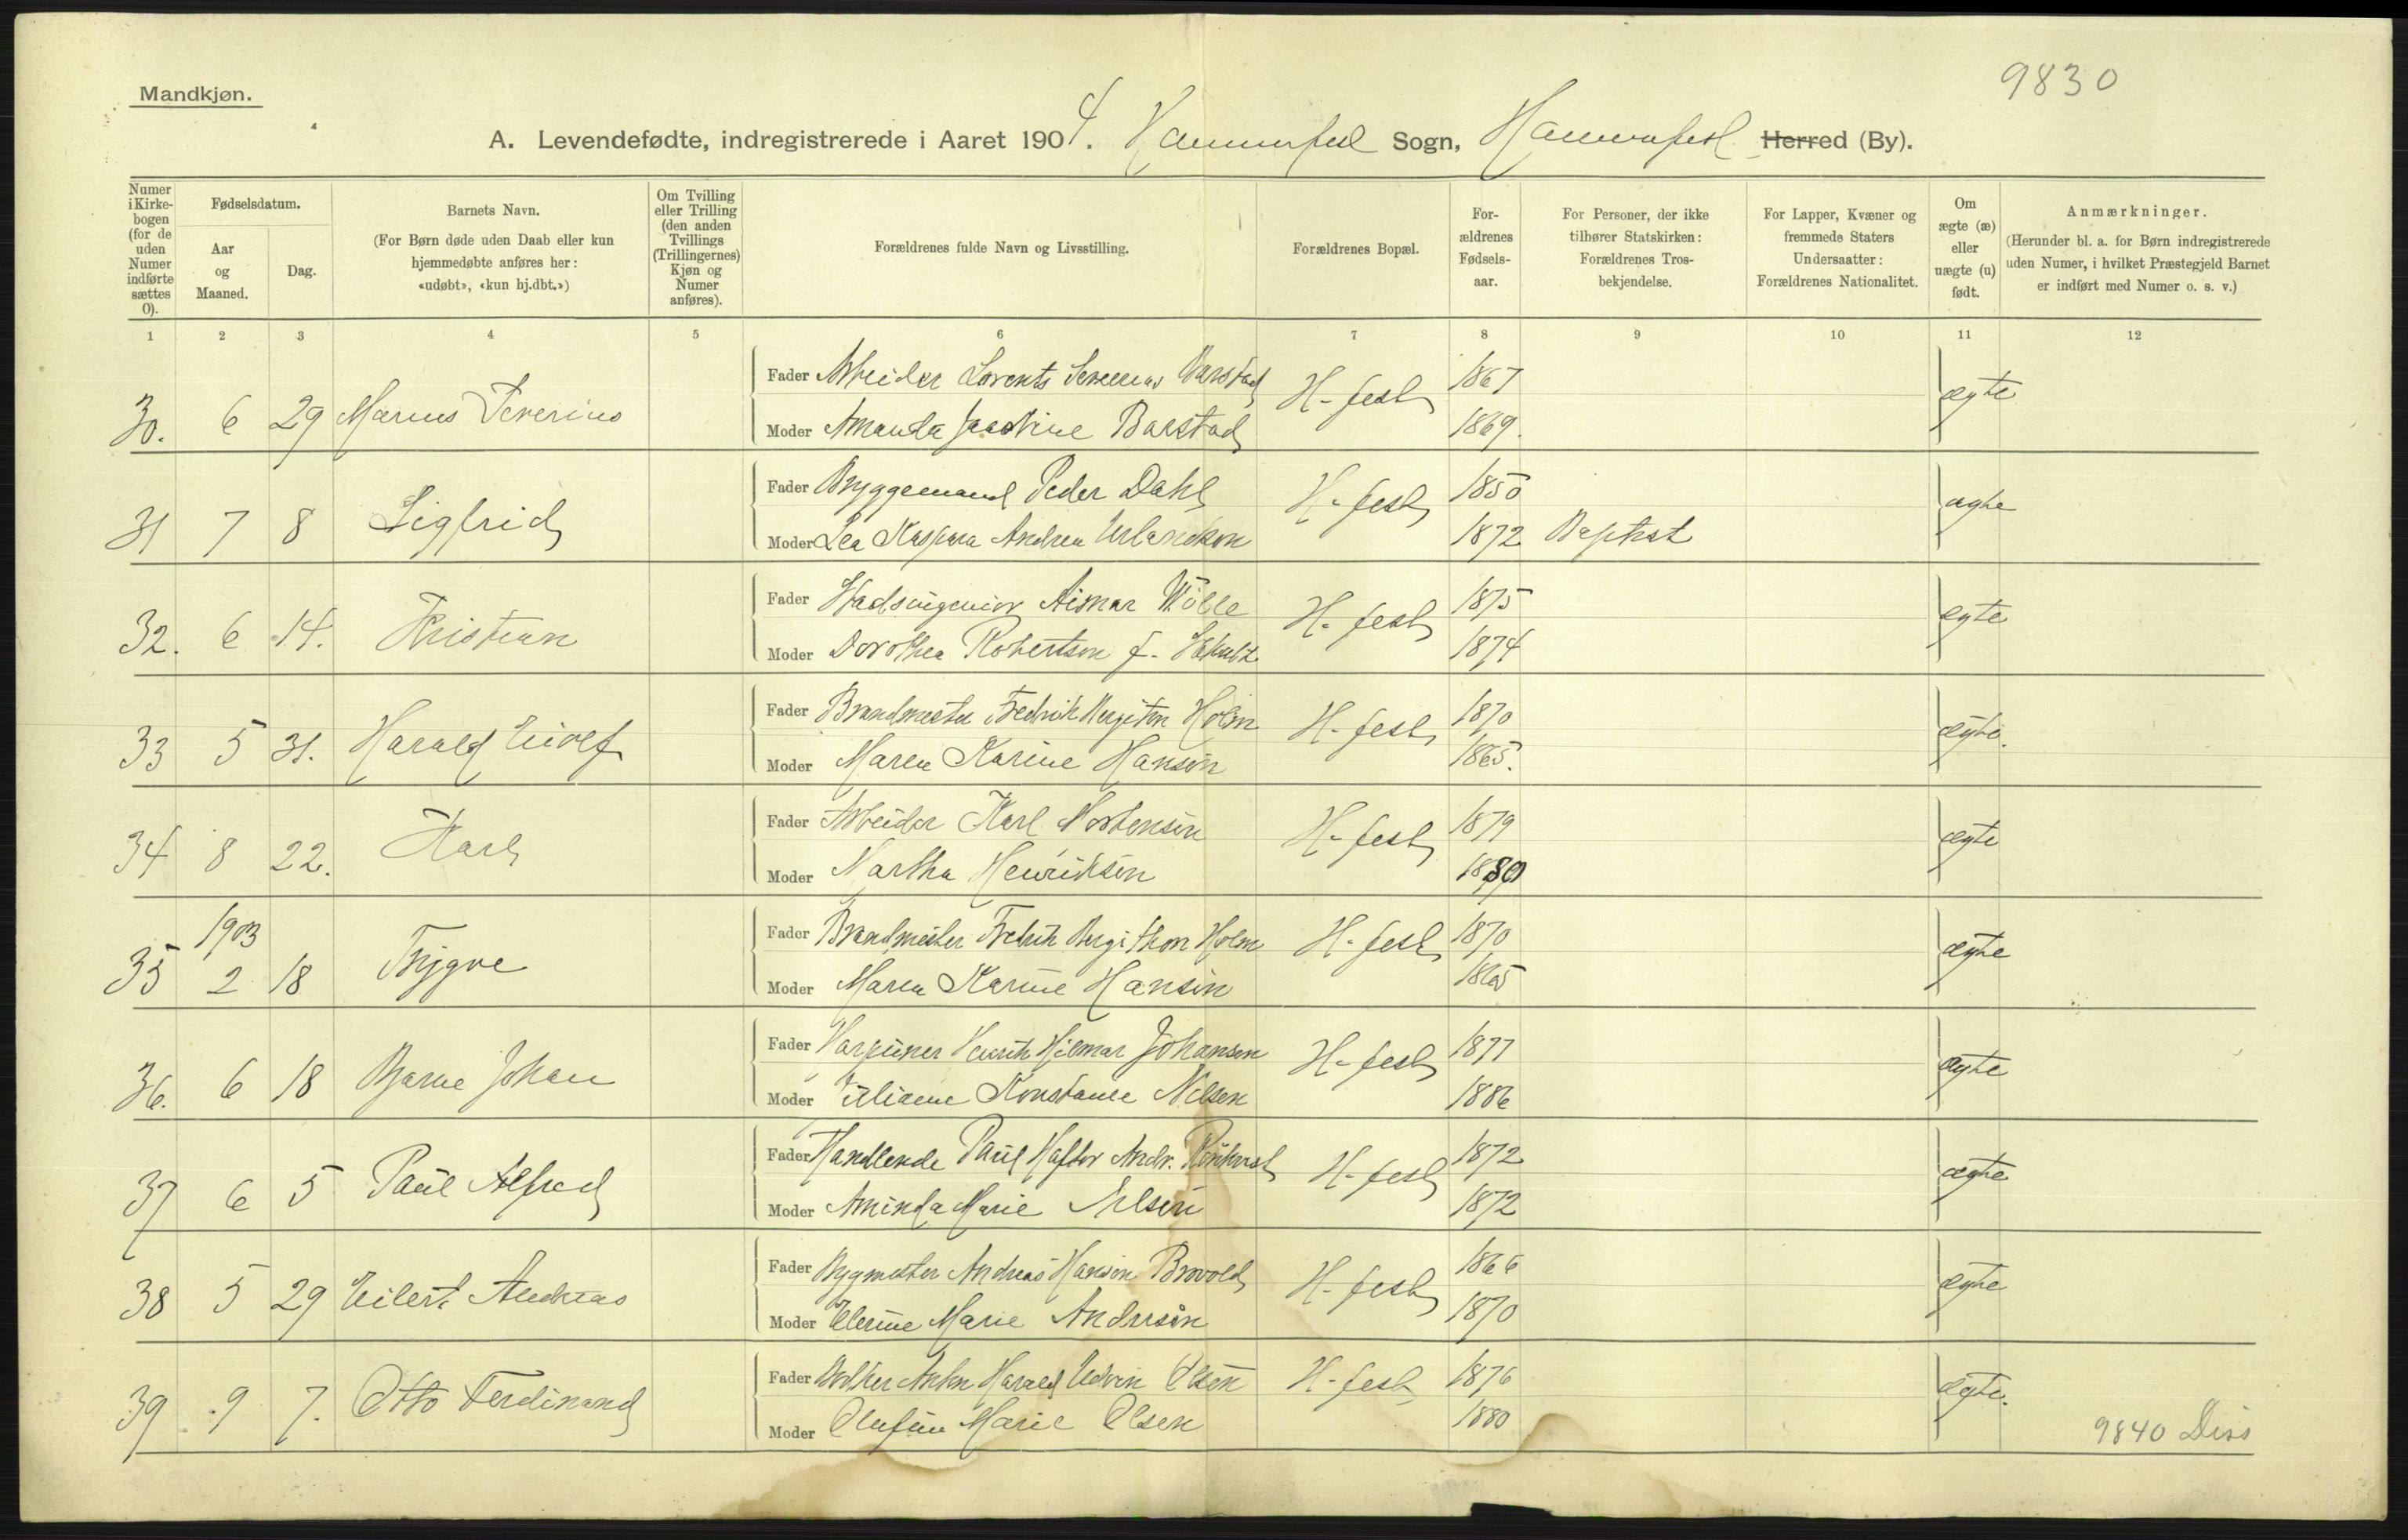 9830
Mandkjøn.
A. Levendefødte, indregistrerede i Aaret 1904. Hammerfest Sogn, Hammerfest Herred (By).
Numer i Kirkebogen (for de uden Numer indførte sættes 0).
Fødselsdatum.
Aar og Maaned.
Dag.
Barnets Navn.
(For Børn døde uden Daab eller kun hjemmedøbte anføres her: «udøbt», «kun hj.dbt.»)
Om Tvilling eller Trilling (den anden Tvillings (Trillingernes) Kjøn og Numer anføres).
Forældrenes fulde Navn og Livsstilling.
Forældrenes Bopæl.
Forældrenes Fødselsaar.
For Personer, der ikke tilhører Statskirken: Forældrenes Trosbekjendelse.
For Lapper, Kvæner og fremmede Staters Undersaatter: Forældrenes Nationalitet.
Om ægte (æ) eller uægte (u) født.
Anmærkninger.
(Herunder bl. a. for Børn indregistrerede uden Numer, i hvilket Præstegjeld Barnet er indført med Numer o. s. v.)
1 2 3 4 5 6 7 8 9 10 11 12
Fader Arbeider Lorents Severin 1867
30. 6 29 Marius Severius H-fest ægte
Moder Amanda Barstad 1869.
Fader Bryggemand Peder Dahl 1850
31 7 8 Sigfrid H-fest ægte
Moder Lea Kaspara Andrea Erlandsen 1872 Baptist
Fader Stadsingeniør 1875
32. 6 14. Kristian H-fest ægte
Moder Dorothea Robertson f. 1874
Fader Brandmester Fredrik Holm 1870
33 5 31. Harald Eivolf H-fest ægte.
Moder Maren Karine Hansen 1865.
Fader Arbeider Karl Mortensen 1879
34 8 22. Karl H-fest ægte
Moder Martha Henriksen 1880
Fader Brandmester Fredrik Holm 1870
35 1903 2 18 Trygve H-fest ægte
Moder Maren Karine Hansen 1865
Fader Harpuner Henrik Hilmar Johansen 1877
36. 6 18 Bjarne Johan H-fest ægte
Moder Konstance Nilsen 1886
Fader Handlende Paul Haftor Andr. 1872
37 6 5 Paul Alfred H-fest ægte
Moder Aminda Marie 1872
Fader Bygmester Andreas Hansen Brovold 1866
38 5 29 Eilert Andreas H-fest ægte
Moder Elerine Marie Andersen 1870
Fader Anton Harald Edvin Olsen 1876
39 9 7. Otto Ferdinand H-fest ægte.
Moder Olufine Marie Olsen 1880
9840 Diss